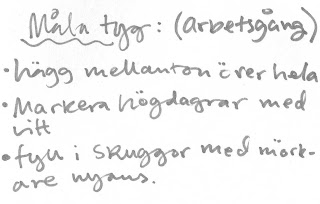 Måla tyg: (arbetsgång)
• hägg mellanton över hela
• Markera högdagrar med
vitt
• fyll i skuggor med mörk-
are nyans.